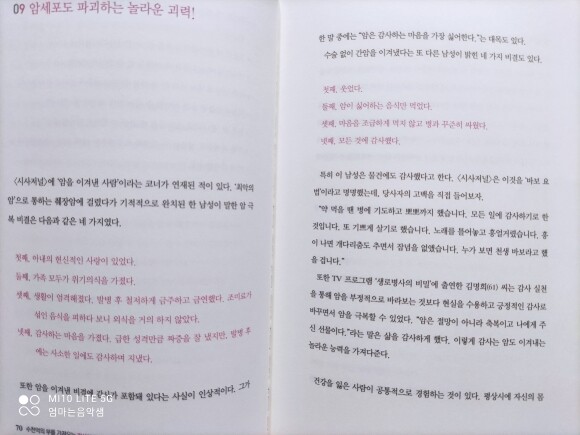 09 암세포도 파괴하는 놀라운 괴력!
〈시사저널〉에 '암을 이겨낸 사람'이라는 코너가 연재된 적이 있다. '최악의
암'으로 통하는 췌장암에 걸렸다가 기적적으로 완치된 한 남성이 말한 암 극
복 비결은 다음과 같은 네 가지였다.
첫째, 아내의 헌신적인 사랑이 있었다.
둘째, 가족 모두가 위기의식을 가졌다.
셋째, 생활이 엄격해졌다. 발병 후 철저하게 금주하고 금연했다. 조미료가
섞인 음식을 피하다 보니 외식을 거의 하지 않았다.
넷째, 감사하는 마음을 가졌다. 급한 성격만큼 짜증을 잘 냈지만, 발병 후
에는 사소한 일에도 감사하며 지냈다.
또한 암을 이겨낸 비결에 감사가 포함돼 있다는 사실이 인상적이다. 그가
MI10 LITE 5G
엄마는음악샘
70
한 말 중에는 "암은 감사하는 마음을 가장 싫어한다."는 대목도 있다.
수술 없이 간암을 이겨냈다는 또 다른 남성이 밝힌 네 가지 비결도 있다.
첫째, 웃었다.
둘째, 암이 싫어하는 음식만 먹었다.
셋째, 마음을 조급하게 먹지 않고 병과 꾸준히 싸웠다.
넷째, 모든 것에 감사했다.
특히 이 남성은 물건에도 감사했다고 한다. 〈시사저널〉은 이것을 '바보 요
법'이라고 명명했는데, 당사자의 고백을 직접 들어보자.
"약 먹을 땐 병에 기도하고 뽀뽀까지 했습니다. 모든 일에 감사하기로 한
것입니다. 또 기쁘게 살기로 했습니다. 노래를 틀어놓고 흥얼거렸습니다. 흥
이 나면 개다리춤도 추면서 잡념을 없앴습니다. 누가 보면 천생 바보라고 했
을 겁니다."
또한 TV 프로그램 '생로병사의 비밀'에 출연한 김명희(61) 씨는 감사 실천
을 통해 암을 부정적으로 바라보는 것보다 현실을 수용하고 긍정적인 감사로
바꾸면서 암을 극복할 수 있었다. "암은 절망이 아니라 축복이고 나에게 주
신 선물이다."라는 말은 삶을 감사하게 했다. 이렇게 감사는 암도 이겨내는
놀라운 능력을 가져다준다.
건강을 잃은 사람이 공통적으로 경험하는 것이 있다. 평상시에 자신의 몸